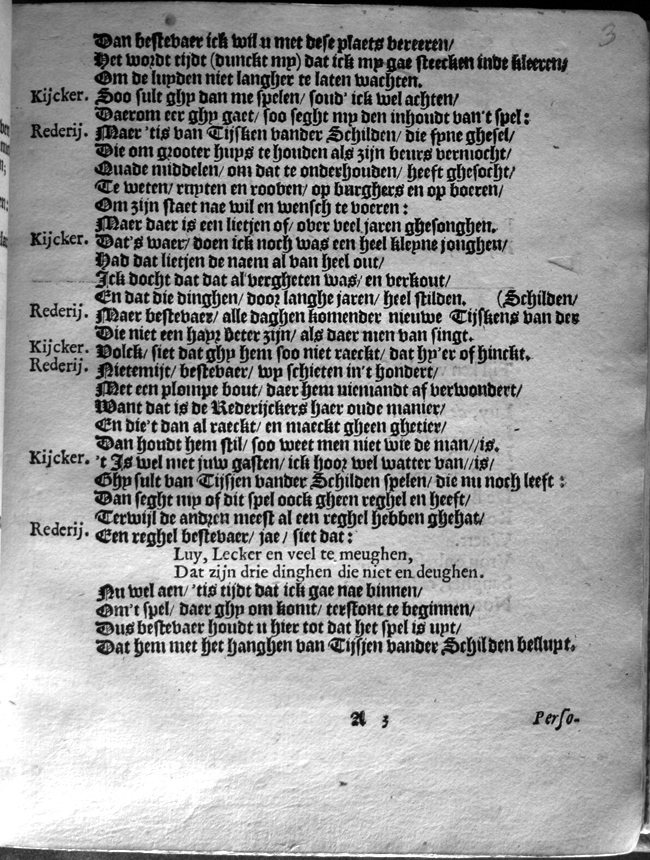 3
Dan bestevaer ick wil u met dese plaets vereeren/
Het wordt tijdt (dunckt my) dat ick my gae steecken inde kleeren/
Om de luyden niet langher te laten wachten.
Kijcker. Soo sult ghy dan me spelen/ soud' ick wel achten/
Daerom eer ghy gaet/ soo seght my den inhoudt van't spel:
Rederij. Maer 'tis van Tijsken vander Schilden/ die fyne ghesel/
Die om grooter huys te houden als zijn beurs vermocht/
Quade middelen/ om dat te onderhouden/ heeft ghesocht/
Te weten/ ruyten en rooven/ op burghers en op boeren/
Om zijn staet nae wil en wensch te voeren:
Maer daer is een lietjen of/ over veel jaren ghesonghen.
Kijcker. Dat's waer/ doen ick noch was een heel kleyne jonghen/
Had dat lietjen de naem al van heel out/
Ick docht dat dat al vergheten was/ en verkout/
En dat die dinghen/ door langhe jaren/ heel stilden. (Schilden/
Rederij. Maer bestevaer/ alle daghen komender nieuwe Tijskens van der
Die niet een hayr beter zijn/ als daer men van singt.
Kijcker. Volck/ siet dat ghy hem soo niet raeckt/ dat hy'er of hinckt.
Rederij. Nietemijt/ bestevaer/ wy schieten in't hondert/
Met een plompe bout/ daer hem niemandt af verwondert/
Want dat is de Rederijckers haer oude manier/
En die't dan al raeckt/ en maeckt gheen ghetier/
Dan houdt hem stil/ soo weet men niet wie de man//is.
Kijcker. 't Is wel met juw gasten/ ick hoor wel watter van//is/
Ghy sult van Tijsjen vander Schilden spelen/ die nu noch leeft:
Dan seght my of dit spel oock gheen reghel en heeft/
Terwijl de andren meest al een reghel hebben ghehat/
Rederij. Een reghel bestevaer/ jae/ siet dat:
Luy, Lecker en veel te meughen,
Dat zijn drie dinghen die niet en deughen.
Nu wel aen/ 'tis tijdt dat ick gae nae binnen/
Om't spel/ daer ghy om komt/ terstont te beginnen/
Dus bestevaer houdt u hier tot dat het spel is uyt/
Dat hem met het hanghen van Tijsjen vander Schilden besluyt.
A 3 Perso-